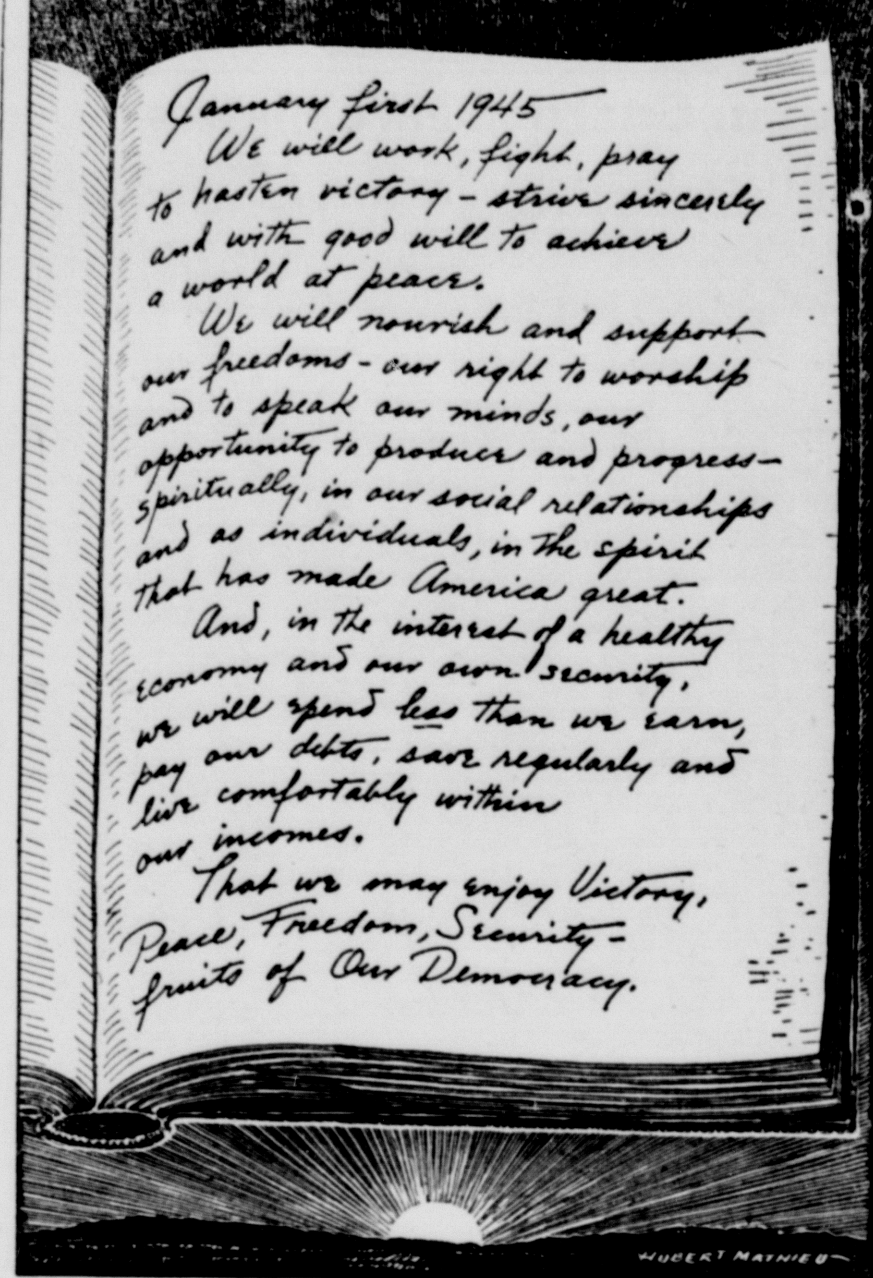 January first 1945
We will work, fight, pray
to hasten victory - strive sincerely
and with good will to achieve
a world at peace.
We will nourish and support
our freedoms - our right to worship
and to speak our minds, our
opportunity to produce and progress-
spiritually, in our social relationships
and as individuals, in the spirit
that has made America great.
And, in the interest of a healthy
economy and our own security,
we will spend less than we earn,
pay our debts, save regularly and
live comfortably within
our incomes.
That we may enjoy Victory,
Peace, Freedom, Security-
fruits of Our Democracy.
HUBERT MATHIEU